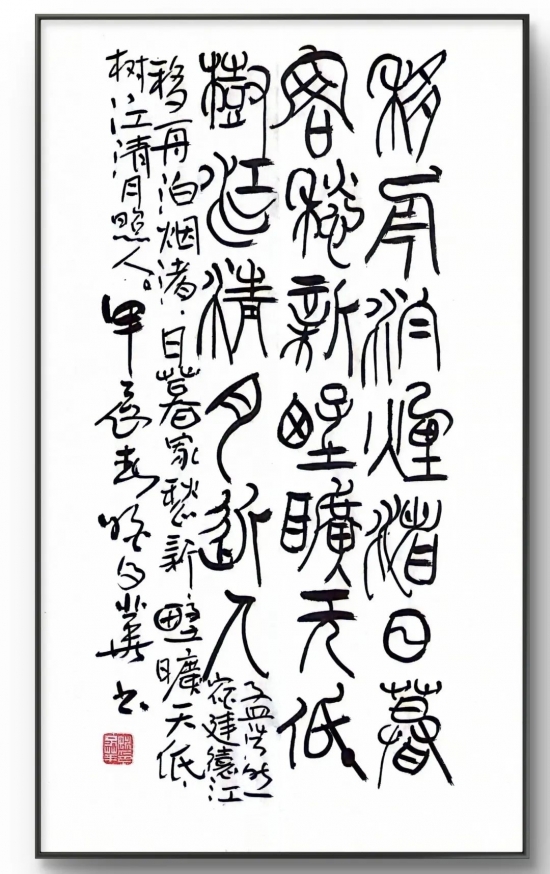 移舟泊煙渚日暮
客愁新野曠天低
樹江清月近人
孟浩然
宿建德江
移舟泊烟渚，日暮家愁新野曠天低，
树，江清月照人。甲辰春书